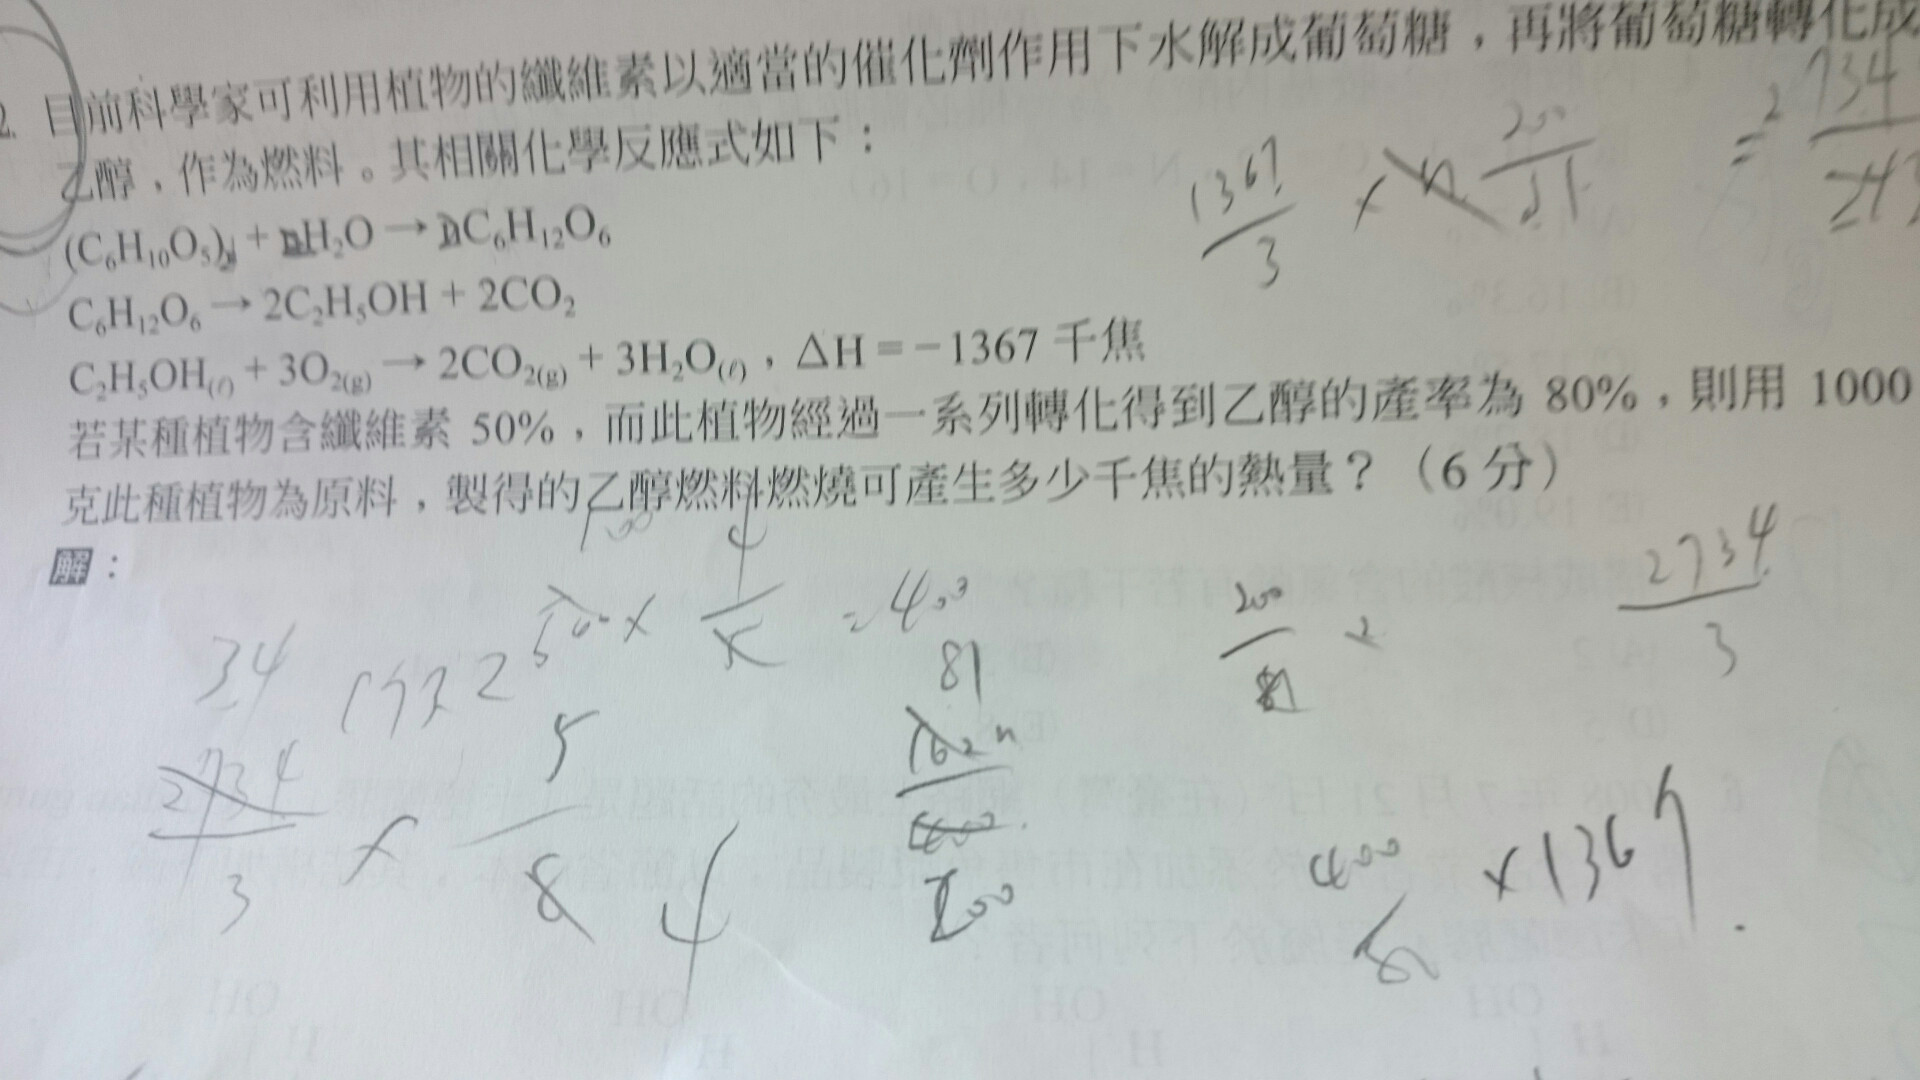 2. 目前科學家可利用植物的纖維素以適當的催化劑作用下水解成葡萄糖，再將葡萄糖轉化成
乙醇，作為燃料。其相關化學反應式如下：
(C₆H₁₀O₅)ₙ + nH₂O → nC₆H₁₂O₆
C₆H₁₂O₆ → 2C₂H₅OH + 2CO₂
C₂H₅OH(ℓ) + 3O₂(g) → 2CO₂(g) + 3H₂O(ℓ)，ΔH = −1367 千焦
若某種植物含纖維素 50%，而此植物經過一系列轉化得到乙醇的產率為 80%，則用 1000
克此種植物為原料，製得的乙醇燃料燃燒可產生多少千焦的熱量？（6 分）
解：
1367/3 ×
200
= 2734
500 × 4/5 = 400
81
162n
400
200
200/81 2
2734/3
34
2734/3 × 5/8
4
400/81 × 1367